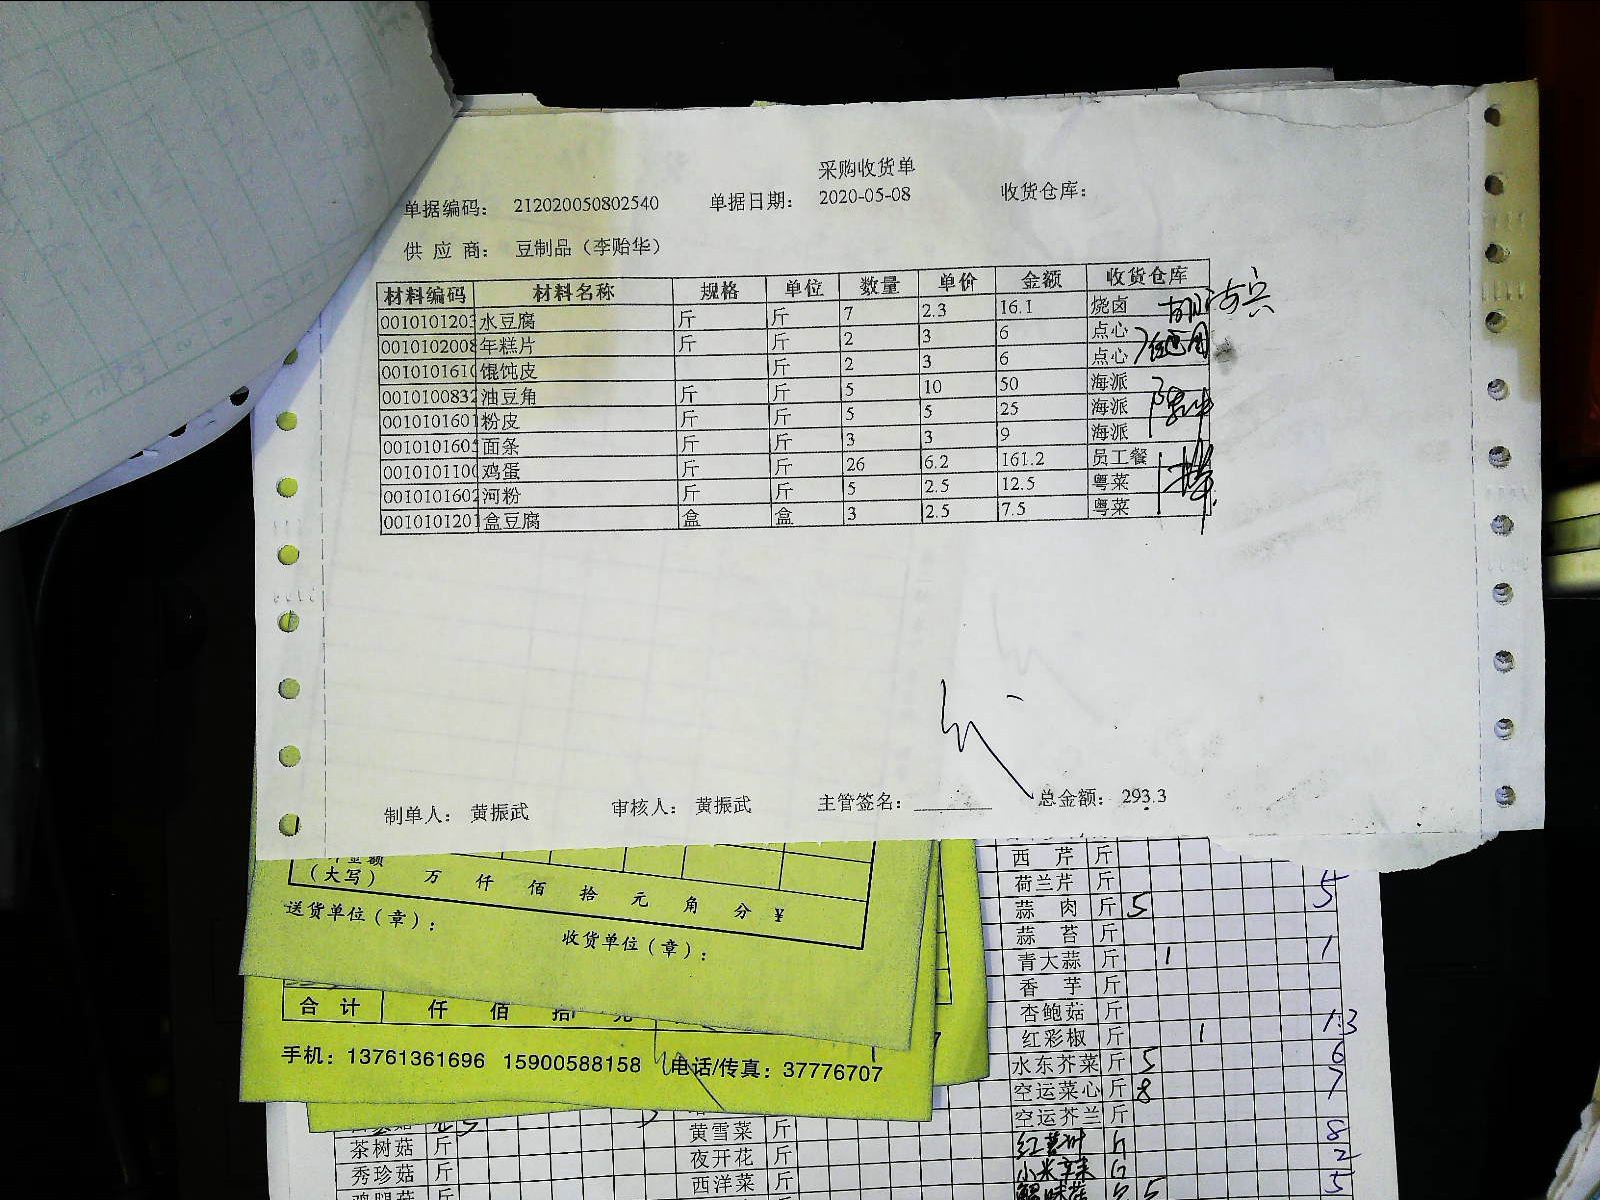 采购收货单
单据编码： 212020050802540 单据日期： 2020-05-08 收货仓库：
供 应 商： 豆制品（李贻华）
材料编码 材料名称 规格 单位 数量 单价 金额 收货仓库
0010101203 水豆腐 斤 斤 7 2.3 16.1 烧卤
0010102008 年糕片 斤 斤 2 3 6 点心
001010161 馄饨皮 斤 2 3 6 点心
0010100832 油豆角 斤 斤 5 10 50 海派
0010101601 粉皮 斤 斤 5 5 25 海派
001010160 面条 斤 斤 3 3 9 海派
001010110 鸡蛋 斤 斤 26 6.2 161.2 员工餐
0010101602 河粉 斤 斤 5 2.5 12.5 粤菜
0010101201 盒豆腐 盒 盒 3 2.5 7.5 粤菜
制单人： 黄振武 审核人： 黄振武 主管签名： 总金额： 293.3
（大写） 万 仟 佰 拾 元 角 分 ¥
送货单位（章）： 收货单位（章）：
合 计 仟 佰 拾
手机：13761361696 15900588158 电话/传真：37776707
西 芹 斤
荷兰芹 斤
蒜 肉 斤 5 5
蒜 苔 斤
青大蒜 斤 1 1
香 芋 斤
杏鲍菇 斤
红彩椒 斤 1 1.3
水东芥菜 斤 5 6
空运菜心 斤 8 7
空运芥兰 斤
茶树菇 斤 黄雪菜 斤 8
秀珍菇 斤 夜开花 斤 2
西洋菜 斤 5 5